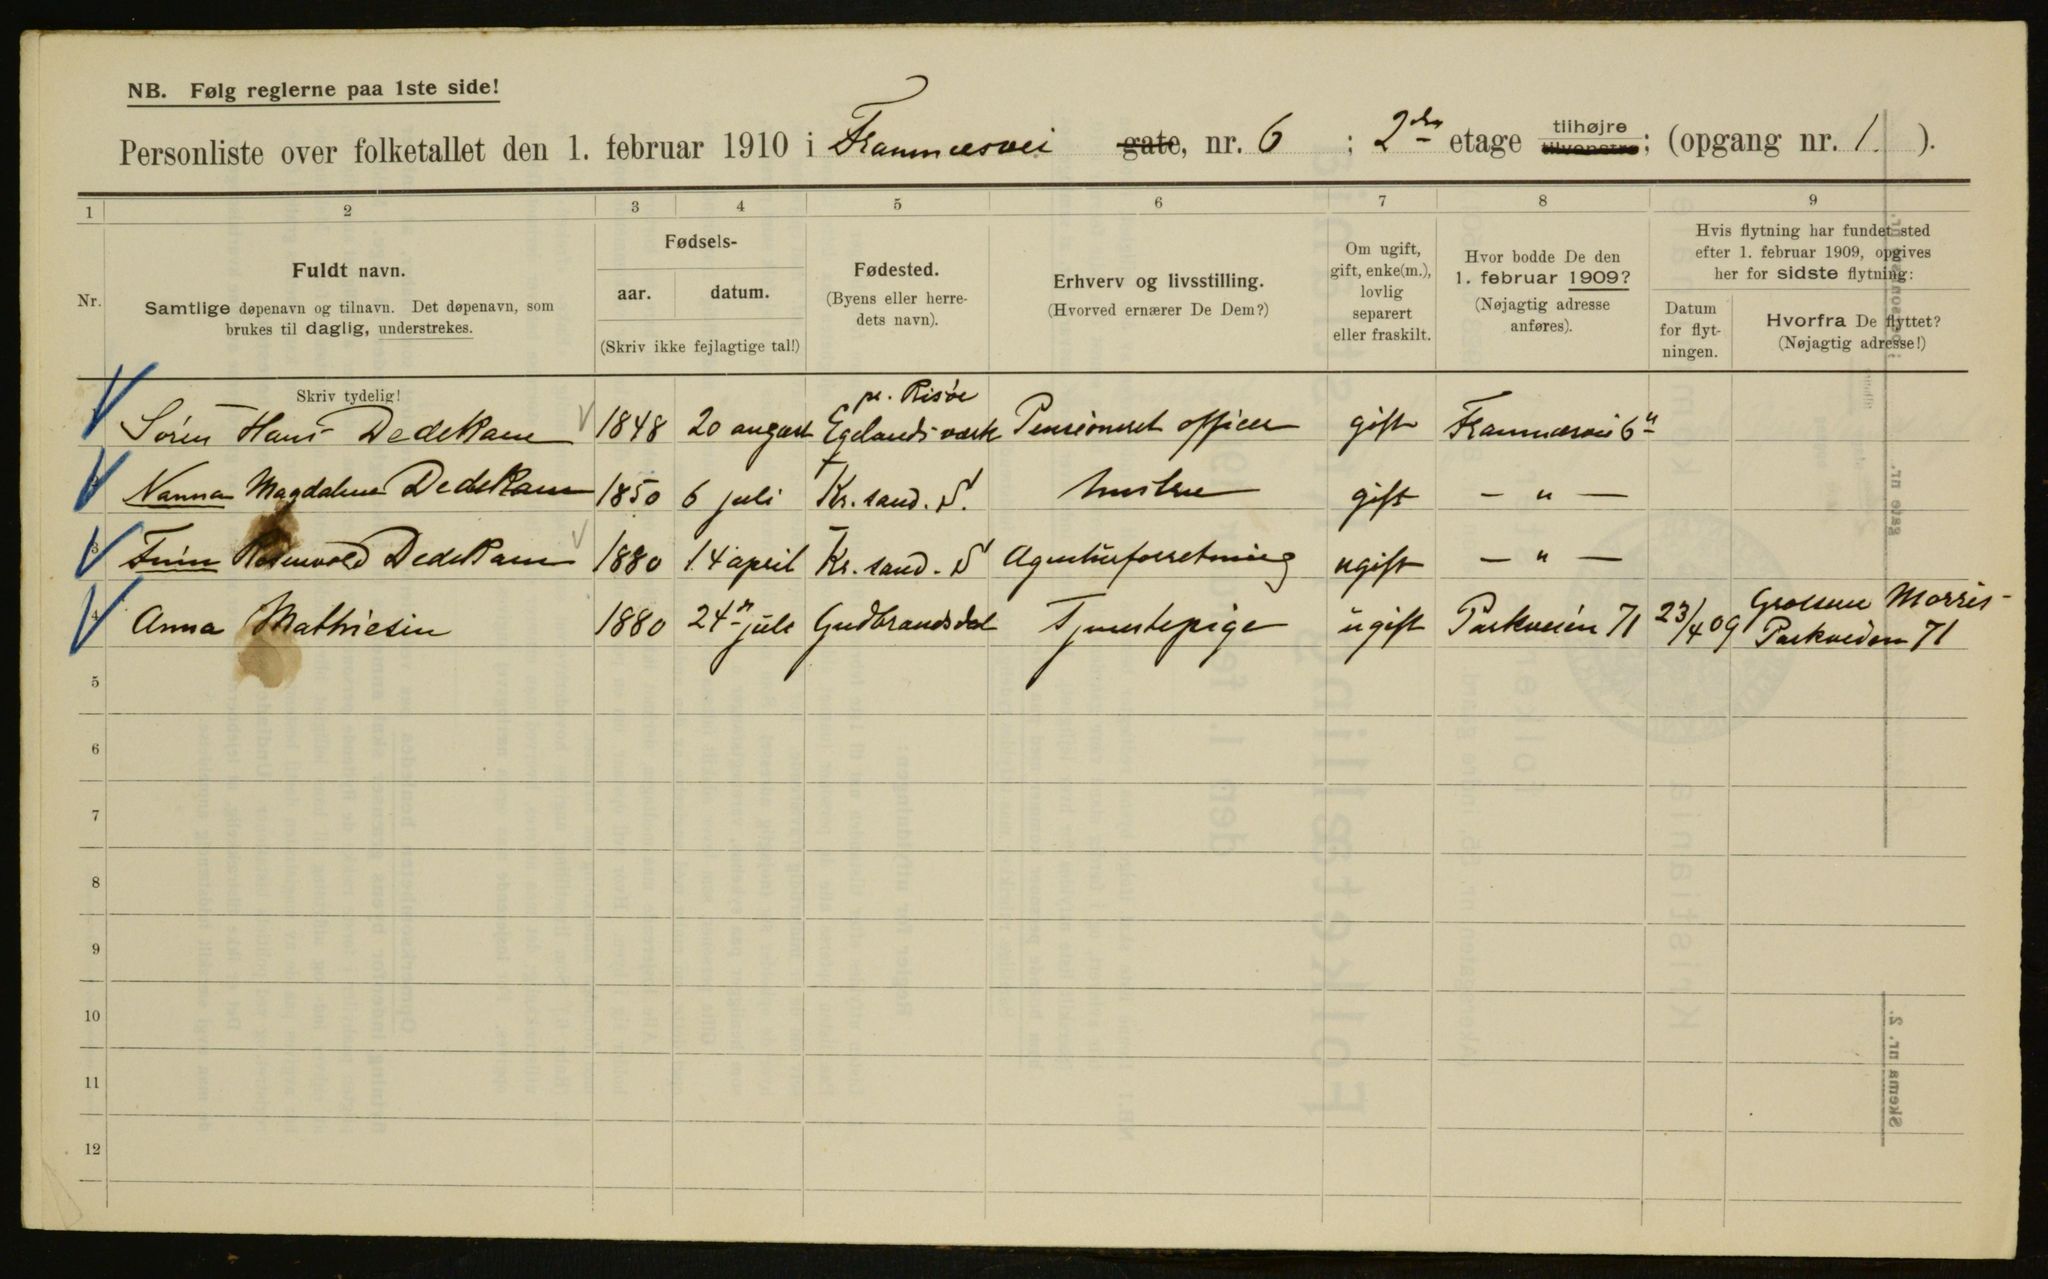 NB. Følg reglerne paa 1ste side!
Personliste over folketallet den 1. februar 1910 i Framnæsvei gate, nr. 6 ; 2den etage tilhøjre tilvenstre; (opgang nr. 1. ).
1 2 3 4 5 6 7 8 9
Nr.
Fuldt navn.
Samtlige døpenavn og tilnavn. Det døpenavn, som
brukes til daglig, understrekes.
Skriv tydelig!
Fødsels-
aar. datum.
(Skriv ikke fejlagtige tal!)
Fødested.
(Byens eller herre-
dets navn).
Erhverv og livsstilling.
(Hvorved ernærer De Dem?)
Om ugift,
gift, enke(m.),
lovlig
separert
eller fraskilt.
Hvor bodde De den
1. februar 1909?
(Nøjagtig adresse
anføres).
Hvis flytning har fundet sted
efter 1. februar 1909, opgives
her for sidste flytning:
Datum
for flyt-
ningen.
Hvorfra De flyttet?
(Nøjagtig adresse!)
pr. Risør
Søren Hans Dedekam 1848 20 august Egelands værk Pensioneret officer gift Framnæsvei 6II
Nanna Magdalene Dedekam 1850 6 juli Kr. sand. S. hustru gift — " —
3 Finn Rosenvold Dedekam 1880 14 april Kr. sand. S Agenturforretning ugift — " —
4 Anna Mathiesen 1880 24n juli Gudbrandsdal Tjenestepige ugift Parkveien 71 23/4 09 Grosserer Morris-
Parkveien 71
5
6
7
8
9
10
11
12